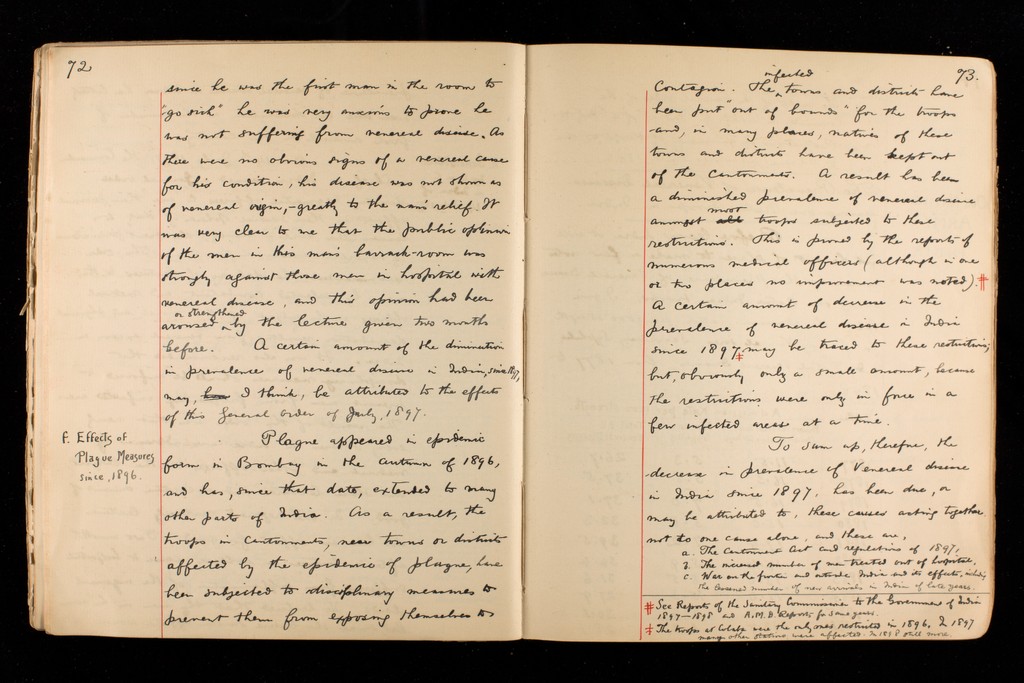 72
since he was the first man in the room to
"go sick" he was very anxious to prove he
was not suffering from venereal disease. As
there were no obvious signs of a venereal cause
for his condition, his disease was not shown as
of venereal origin, - greatly to the man's relief. It
was very clear to me that the public opinion
of the men in this man's barrack-room was
strongly against those men in hospital with
venereal disease, and this opinion had been
or strengthened
aroused by the lecture given two months
before. A certain amount of the diminution
in prevalence of venereal disease in India, since 1897,
may, I think, be attributed to the effects
of this General Order of July, 1897.
F. Effects of
Plague Measures
since, 1896.
Plague appeared in epidemic
form in Bombay in the autumn of 1896,
and has, since that date, extended to many
other parts of India. As a result, the
troops in cantonments, near towns or districts
affected by the epidemic of plague, have
been subjected to disciplinary measures to
prevent them from exposing themselves to
73.
infected
Contagion. The towns and districts have
been put "out of bounds" for the troops
and, in many places, natives of these
towns and districts have been kept out
of the cantonments. A result has been
a diminished prevalence of venereal disease
most
amongst all troops subjected to these
restrictions. This is proved by the reports of
numerous medical officers (although in one
or two places no improvement was noted). #
A certain amount of decrease in the
prevalence of venereal disease in India
since 1897 ‡ may be traced to these restrictions,
but, obviously only a small amount, because
the restrictions were only in force in a
few infected areas at a time.
To sum up, therefore, the
decrease in prevalence of Venereal disease
in India since 1897, has been due, or
may be attributed to, these causes acting together
not to one cause alone, and these are,
a. The Cantonment Act and regulations of 1897.
b. The increased number of men treated out of hospital.
c. War on the frontier and outside India and its effects, including
the lessened number of new arrivals in India of late years.
# See Reports of the Sanitary Commissioner to the Government of India
1897-1898 and A.M.D. Reports for same years.
‡ The troops at Colaba were the only ones restricted in 1896. In 1897
many other stations were affected. In 1898 still more.